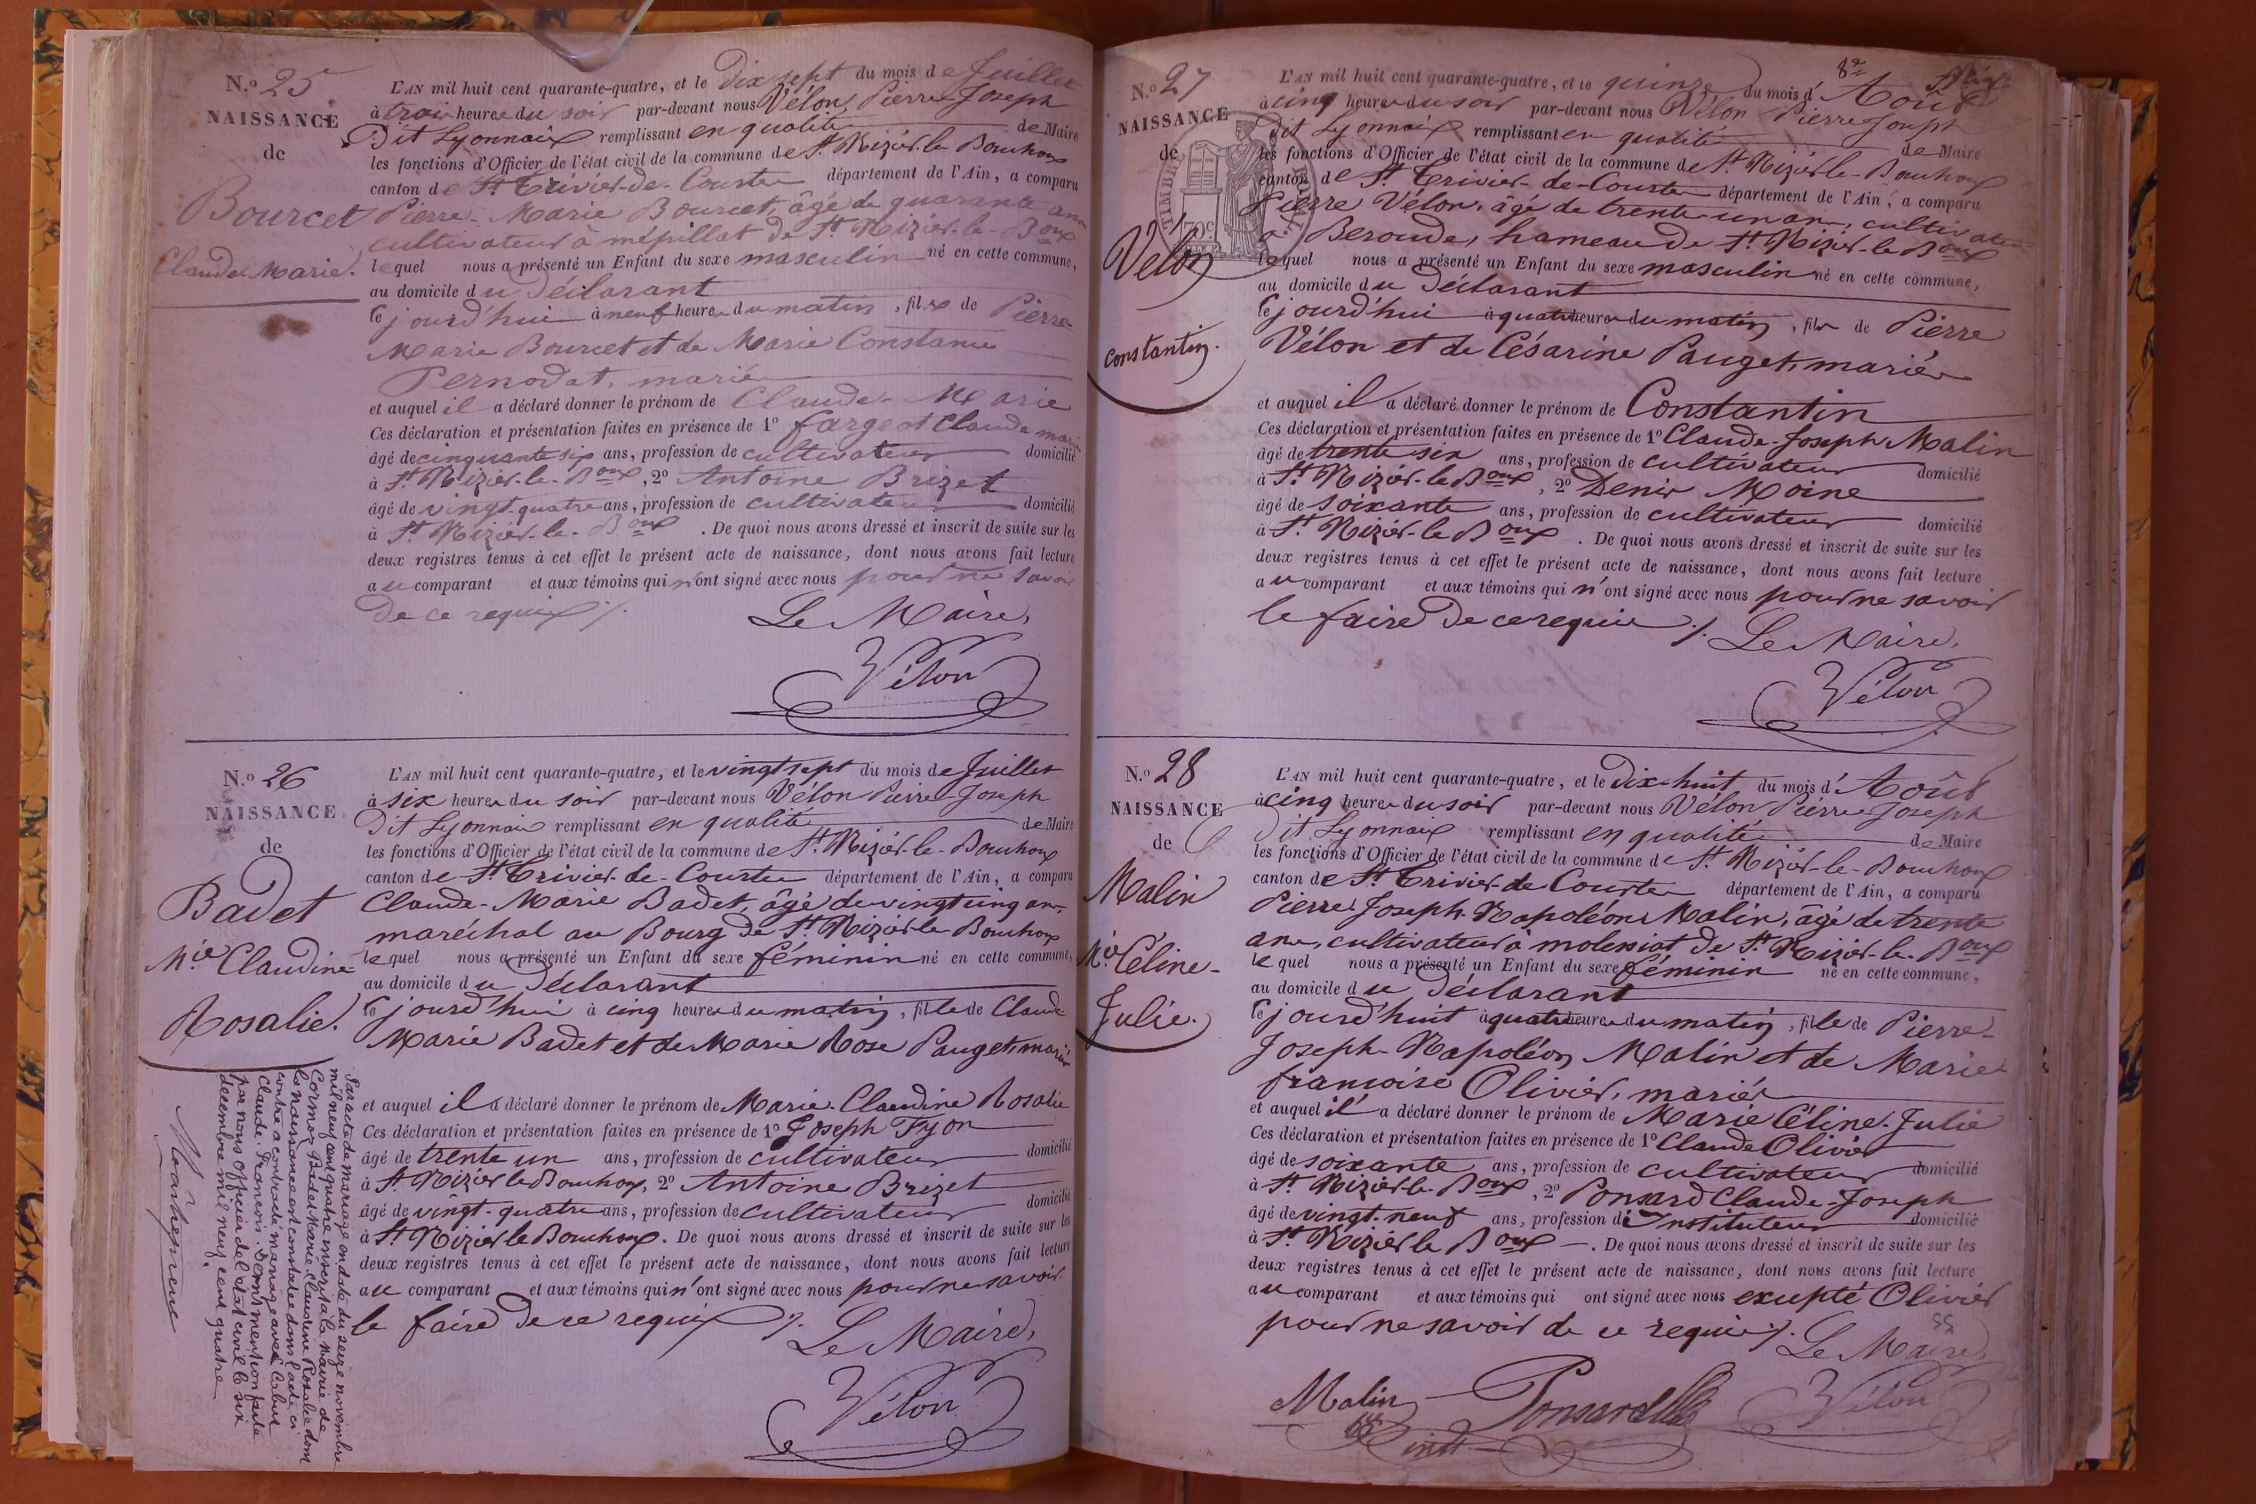 N.º 25
NAISSANCE
de
Bourcet
Claude Marie.
L'AN mil huit cent quarante-quatre, et le Dix sept du mois de Juillet
à trois heures du soir par-devant nous Vélon, Pierre Joseph
Dit Lyonnais remplissant en qualité de Maire
les fonctions d'Officier de l'état civil de la commune de St Nizier-le-Bouhoux
canton de St Trivier-de-Courtes département de l'Ain, a comparu
Pierre-Marie Bourcet, âgé de quarante ans
cultivateur à mépillat de St Nizier-le-Boux
lequel nous a présenté un Enfant du sexe masculin né en cette commune,
au domicile du Déclarant
ce jourd'hui à neuf heures du matin, fils de Pierre
Marie Bourcet et de Marie Constance
Pernodat, mariés
et auquel il a déclaré donner le prénom de Claude-Marie
Ces déclaration et présentation faites en présence de 1º fargeot Claude marie
âgé de cinquante six ans, profession de cultivateur domicilié
à St Nizier-le-Boux, 2º Antoine Brizet
âgé de vingt-quatre ans, profession de cultivateur domicilié
à St Nizier-le-Boux. De quoi nous avons dressé et inscrit de suite sur les
deux registres tenus à cet effet le présent acte de naissance, dont nous avons fait lecture
au comparant et aux témoins qui n'ont signé avec nous pour ne savoir
de ce requis ./.
Le Maire,
Vélon
N.º 26
NAISSANCE
de
Badet
Mie Claudine-
Rosalie.
L'AN mil huit cent quarante-quatre, et le vingt sept du mois de Juillet
à six heures du soir par-devant nous Vélon Pierre Joseph
Dit Lyonnais remplissant en qualité de Maire
les fonctions d'Officier de l'état civil de la commune de St Nizier-le-Bouhoux
canton de St Trivier-de-Courtes département de l'Ain, a comparu
Claude-Marie Badet, âgé de vingt cinq ans,
maréchal au Bourg de St Nizier-le Bouhoux
lequel nous a présenté un Enfant du sexe féminin né en cette commune,
au domicile du Déclarant
ce jourd'hui à cinq heures du matin, fille de Claude
Marie Badet et de Marie Rose Pauget, mariés
et auquel il a déclaré donner le prénom de Marie-Claudine Rosalie
Ces déclaration et présentation faites en présence de 1º Joseph Fyon
âgé de trente un ans, profession de cultivateur domicilié
à St Nizier le Bouhoux, 2º Antoine Brizet
âgé de vingt-quatre ans, profession de cultivateur domicilié
à St Nizier le Bouhoux. De quoi nous avons dressé et inscrit de suite sur les
deux registres tenus à cet effet le présent acte de naissance, dont nous avons fait lecture
au comparant et aux témoins qui n'ont signé avec nous pour ne savoir
le faire de ce requis ./.
Le Maire,
Vélon
Par acte de mariage en date du seize novembre
mil neuf cent quatre inscrit à la mairie de
Cormoz Badet Marie Claudine Rosalie dont
la naissance est constatée dans l'acte ci
contre a contracté mariage avec
Claude François. Dont mention faite
par nous officier de l'état civil le six
décembre mil neuf cent quatre
N.º 27
NAISSANCE
de
Vélon
Constantin.
L'AN mil huit cent quarante-quatre, et le quinze du mois d' Août
à cinq heures du soir par-devant nous Vélon Pierre Joseph
Dit Lyonnais remplissant en qualité de Maire
les fonctions d'Officier de l'état civil de la commune de St Nizier-le-Bouhoux
canton de St Trivier-de-Courtes département de l'Ain, a comparu
Pierre Vélon, âgé de trente un ans, cultivateur
à Beroude, hameau de St Nizier-le Boux
lequel nous a présenté un Enfant du sexe masculin né en cette commune,
au domicile du Déclarant
ce jourd'hui à quatre heures du matin, fils de Pierre
Vélon et de Césarine Pauget, mariés
et auquel il a déclaré donner le prénom de Constantin
Ces déclaration et présentation faites en présence de 1º Claude-Joseph Malin
âgé de trente six ans, profession de cultivateur domicilié
à St Nizier-le Boux, 2º Denis Moine
âgé de soixante ans, profession de cultivateur domicilié
à St Nizier-le Boux. De quoi nous avons dressé et inscrit de suite sur les
deux registres tenus à cet effet le présent acte de naissance, dont nous avons fait lecture
au comparant et aux témoins qui n'ont signé avec nous pour ne savoir
le faire de ce requis ./.
Le Maire,
Vélon
N.º 28
NAISSANCE
de
Malin
Mie Céline-
Julie.
L'AN mil huit cent quarante-quatre, et le Dix-huit du mois d' Août
à cinq heures du soir par-devant nous Vélon Pierre Joseph
Dit Lyonnais remplissant en qualité de Maire
les fonctions d'Officier de l'état civil de la commune de St Nizier-le-Bouhoux
canton de St Trivier-de Courtes département de l'Ain, a comparu
Pierre Joseph-Napoléon Malin, âgé de trente
ans, cultivateur à molensiat de St Nizier-le-Boux
lequel nous a présenté un Enfant du sexe féminin né en cette commune,
au domicile du Déclarant
ce jourd'huit à quatre heures du matin, fille de Pierre-
Joseph-Napoléon Malin et de Marie
françoise Olivier, mariés
et auquel il a déclaré donner le prénom de Marie Céline-Julie
Ces déclaration et présentation faites en présence de 1º Claude Olivier
âgé de soixante ans, profession de cultivateur domicilié
à St Nizier-le-Boux, 2º Ponsard Claude-Joseph
âgé de vingt-neuf ans, profession d'Instituteur domicilié
à St Nizier le Boux. De quoi nous avons dressé et inscrit de suite sur les
deux registres tenus à cet effet le présent acte de naissance, dont nous avons fait lecture
au comparant et aux témoins qui ont signé avec nous excepté Olivier
pour ne savoir de ce requis ./.
Le Maire,
Malin
Ponsard
Vélon